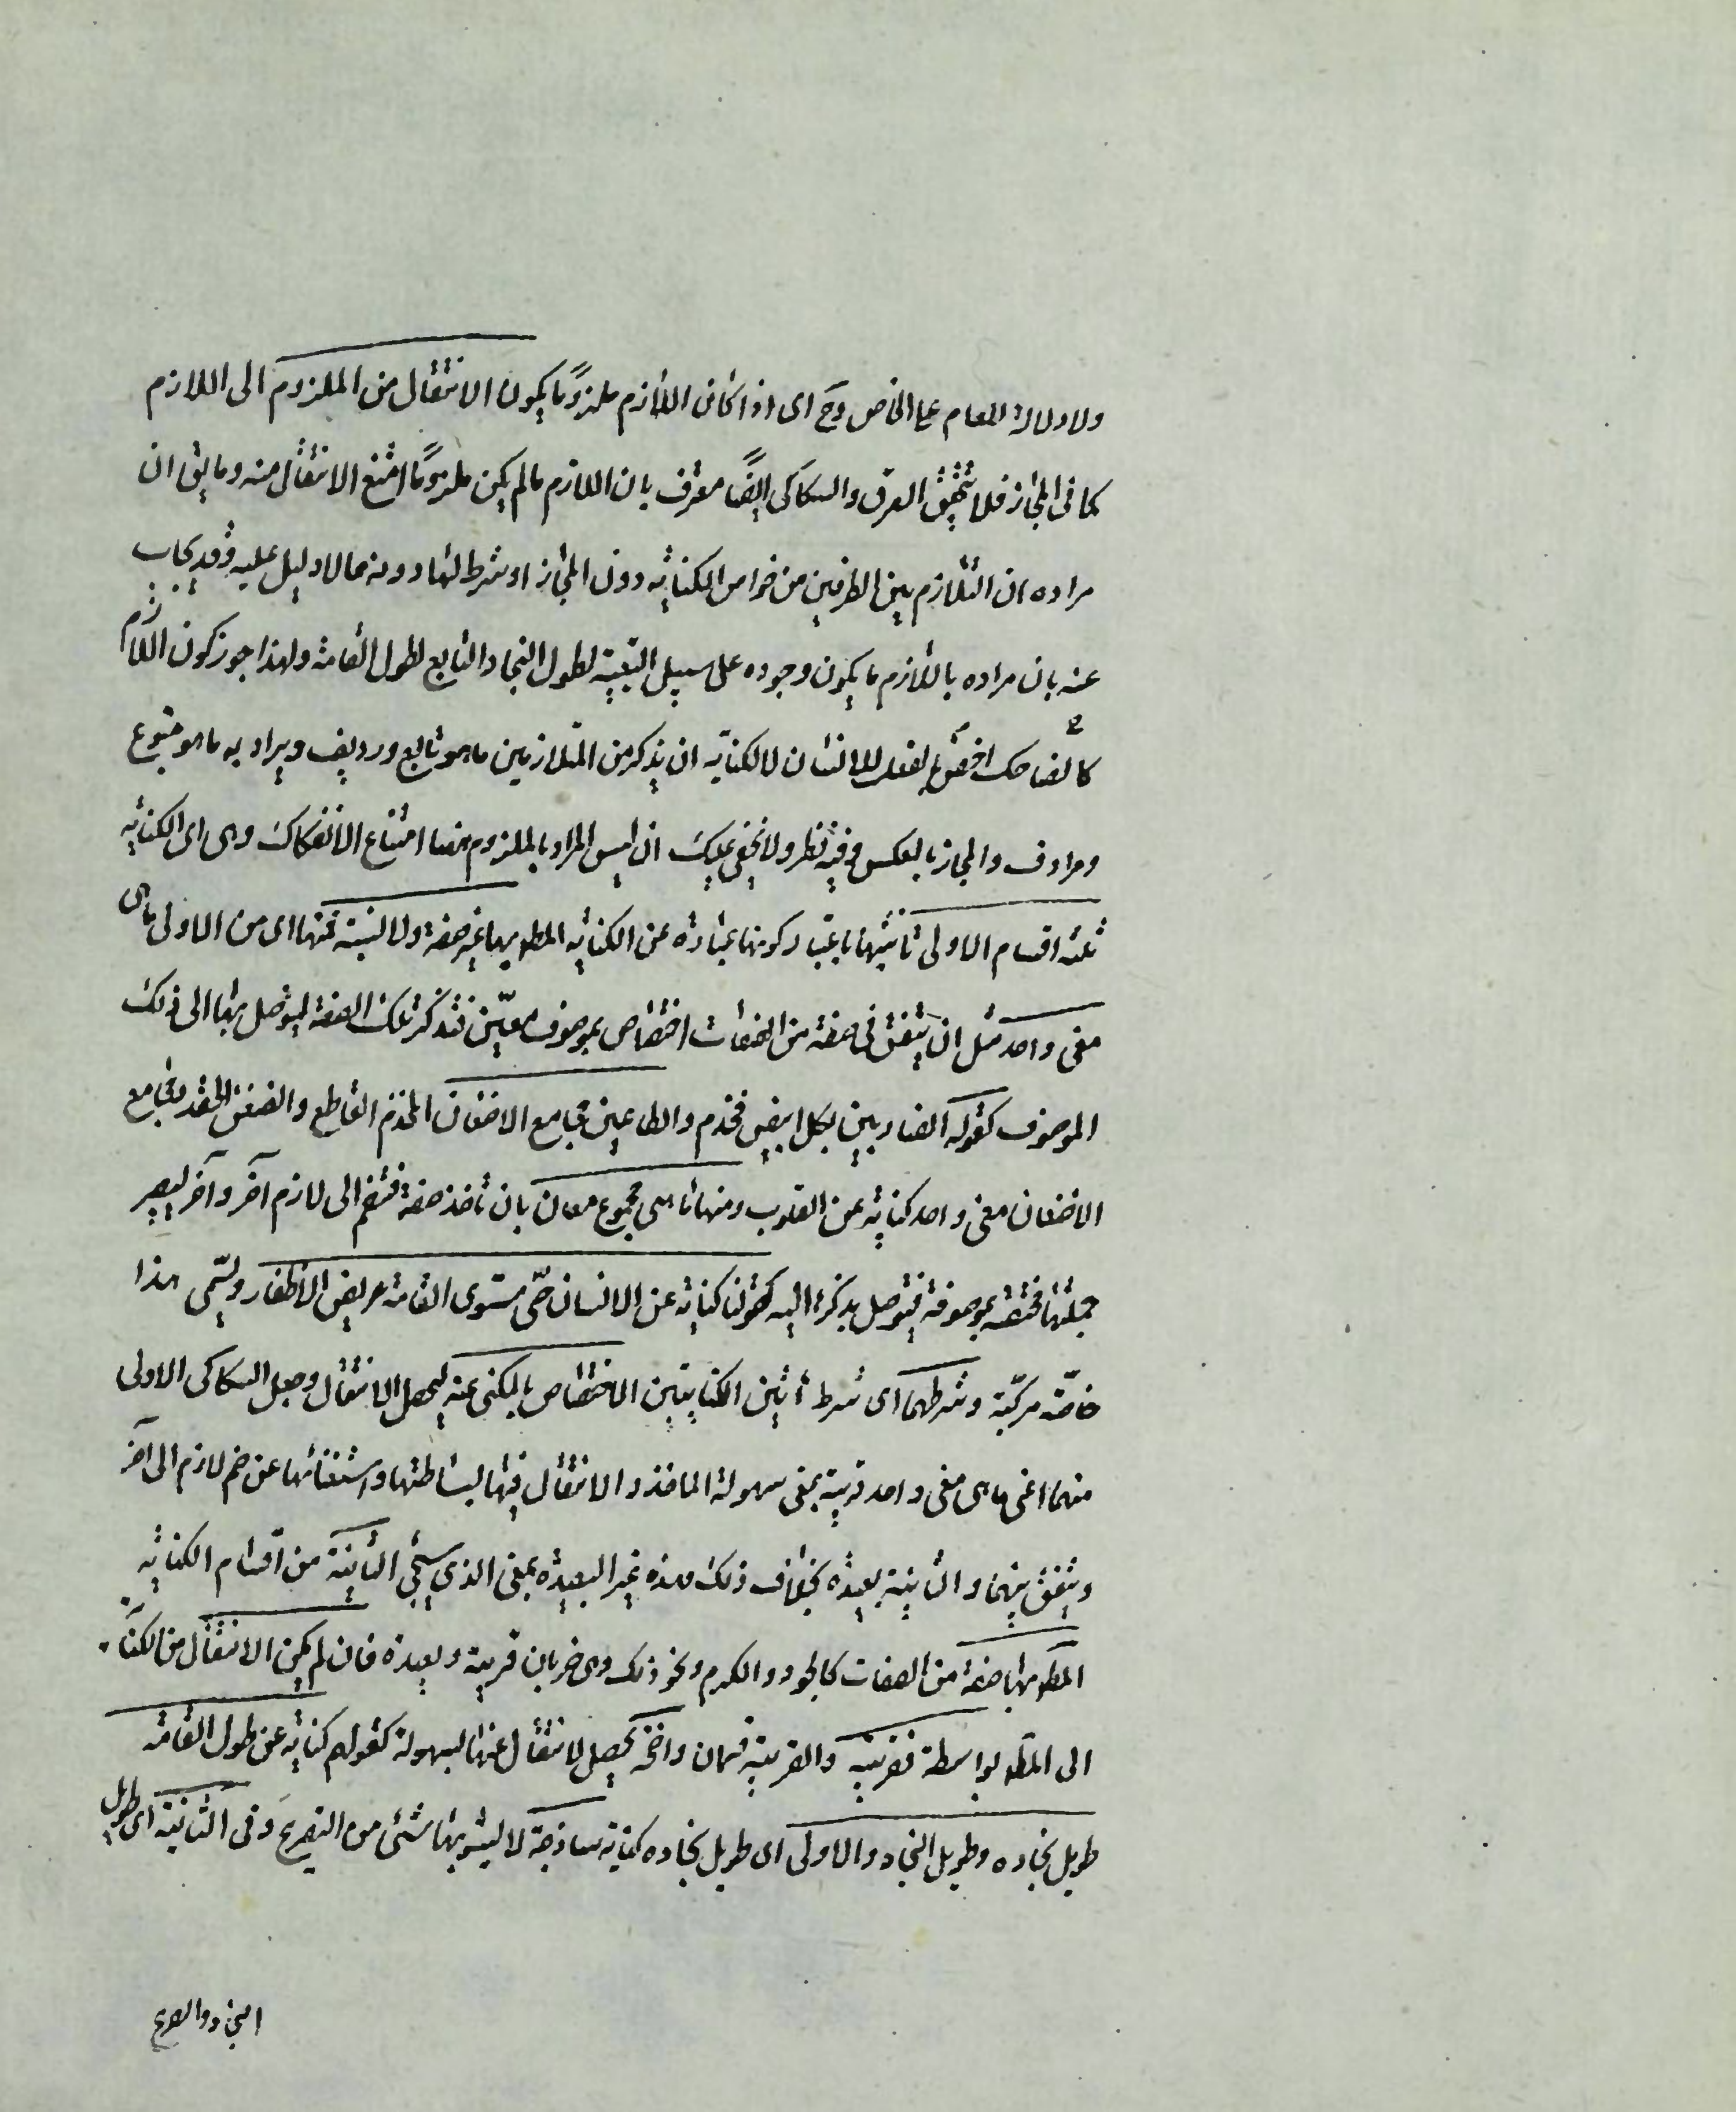 ولا دلالة للعام على الخاص وح اى اذا كان اللازم ملزوماً يكون الانتقال من الملزوم الى اللازم
كما فى المجاز فلا يتحقق الفرق والسكاكى ايضاً معترف بان اللازم مالم يكن ملزوماً امتنع الانتقال منه وما يق ان
مراده ان التلازم بين الطرفين من خواص الكناية دون المجاز او شرط لها دونه مما لا دليل عليه وقد يجاب
عنه بان مراده باللازم ما يكون وجوده على سبيل التبعية لطول النجاد التابع لطول القامة ولهذا جوز كون اللازم
اخص كالضاحك بالفعل للانسان فالكناية ان يذكر من المتلازمين ما هو تابع ورديف ويراد به ما هو متبوع
ومرادف والمجاز بالعكس وفيه نظر ولا يخفى عليك ان ليس المراد بالملزوم ههنا امتناع الانفكاك وهى اى الكناية
ثلثه اقسام الاولى تأنيثها باعتبار كونها عبارة عن الكناية المط بها غير صفة ولا نسبة فمنها اى من الاولى ماهى
معنى واحد مثل ان يتفق فى صفة من الصفات اختصاص بموصوف معيّن فتذكر تلك الصفة ليتوصل بها الى ذلك
الموصوف كقوله الضاربين بكل ابيض مخذم والطاعنين مجامع الاضغان المخذم القاطع والضغن الحقد ومجامع
الاضغان معنى واحد كناية عن القلوب ومنها ماهى مجموع معان بان تأخذ صفة فتضم الى لازم آخر وآخر ليصير
جملتها مختصة بموصوفة فيتوصل بذكرها اليه كقولنا كناية عن الانسان حىّ مستوى القامة عريض الاظفار ويسمّى هذا
خاصّة مركبّة وشرطهما اى شرط هاتين الكنايتين الاختصاص بالمكنى عنه ليحصل الانتقال وجعل السكاكى الاولى
منهما اعنى ماهى معنى واحد قريبة بمعنى سهولة الماخذ والانتقال فيها لبساطتها واستغنائها عن ضم لازم الى آخر
وتلفيق بينهما والثانية بعيدة بخلاف ذلك وهذه غير البعيدة بمعنى الذى سيجئ الثانية من اقسام الكناية
المط بها صفة من الصفات كالجود والكرم ونحو ذلك وهى ضربان قريبة وبعيدة فان لم يكن الانتقال من الكناية
الى المط بواسطة فقريبة والقريبة قسمان واضحة يحصل الانتقال عنها بسهولة كقولهم كناية عن طول القامة
طويل نجاده وطويل النجاد والاولى اى طويل نجاده كناية ساذجة لا يشوبها شئ من التصريح وفى الثانية اى طويل
النجاد والصريح